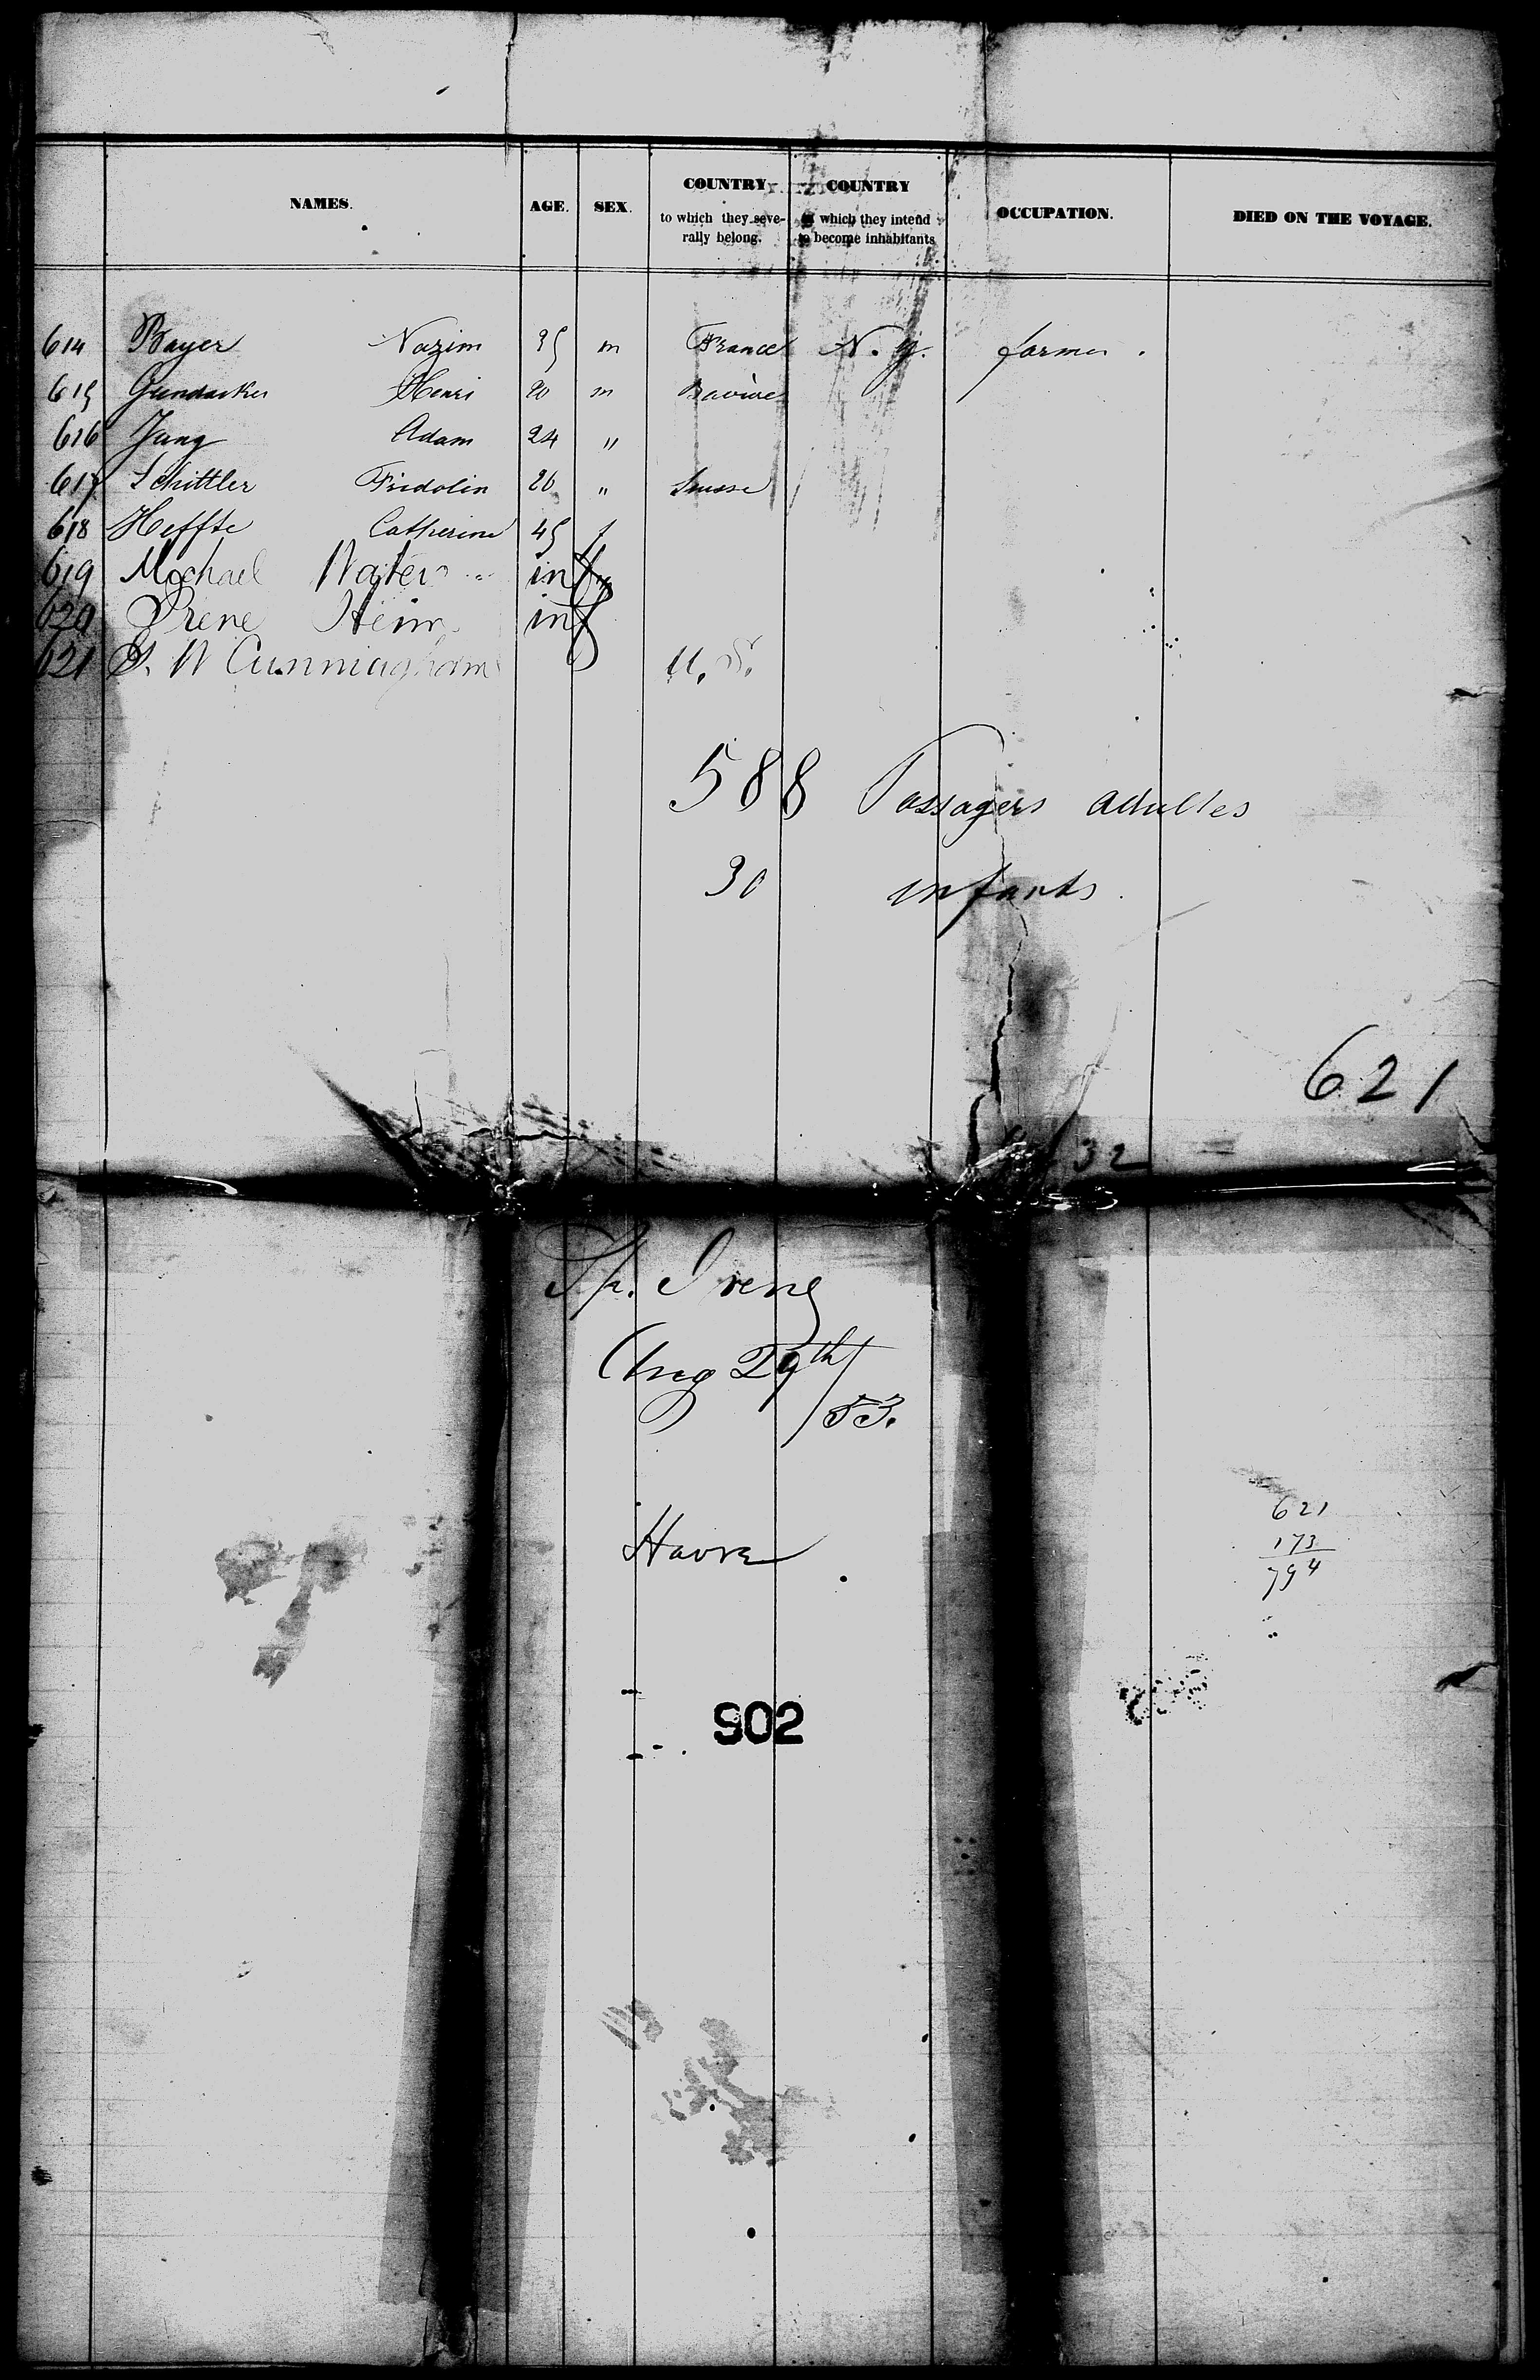 NAMES. AGE. SEX. COUNTRY to which they seve- rally belong. COUNTRY which they intend to become inhabitants OCCUPATION. DIED ON THE VOYAGE.
614 Bayer Nazim 35 m France N.Y. farmer.
615 Gundacker Henri 20 m Bavière
616 Jung Adam 24 "
617 Schittler Fridolin 26 " Suisse
618 Heffte Catherine 45 f
619 Michael Waters inf
620 Irene Heim inf
621 W Cunningham U.S.
588 Passagers adultes
30 infants.
621
32
Sh. Irene
Aug 29th/53.
Havre
621
173
794
902